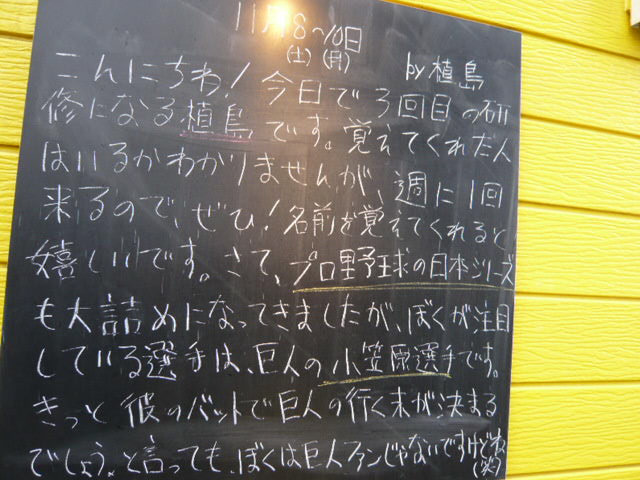 11月8〜10日
(土) (月)
by 植島
こんにちわ！今日で3回目の研
修になる植島です。覚えてくれた人
はいるかわかりませんが、週に1回
来るので、ぜひ！名前を覚えてくれると
嬉しいです。さて、プロ野球の日本シリーズ
も大詰めになってきましたが、ぼくが注目
している選手は、巨人の小笠原選手です。
きっと彼のバットで巨人の行く末が決まる
でしょう。と言っても、ぼくは巨人ファンじゃないですけどネ
(笑)